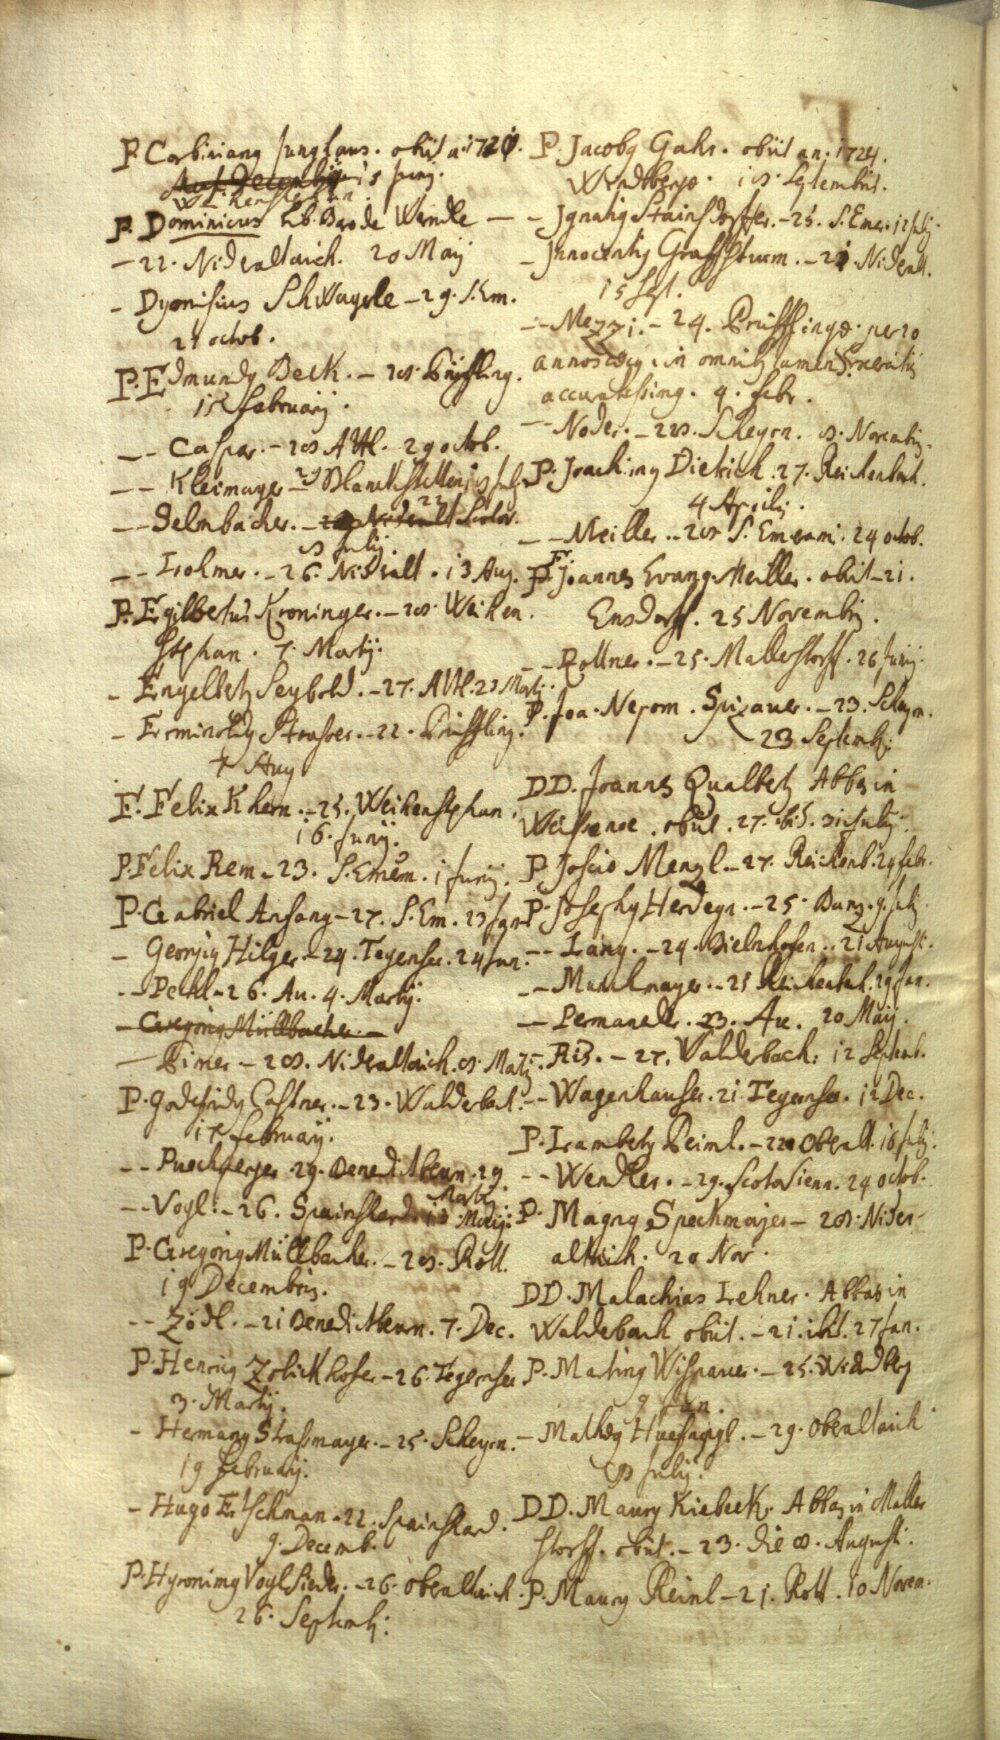 P. Corbinianq Junghaus. obiit a. 1720.
15 Junij.
Weihenstephan.
P. Dominicus Lib. Baro de Werdle —
— 22. Nideraltaich. 20 Maij
- Dyonisius Schwayrle - 29. S. Em.
21 octob.
P. Edmundq Beck. - 28. Prüfling.
15 february.
-- Caspar. - 28 Attl. 29 octob.
-- Kleimayer - 29
-- Selmbacher. -
8 Julij.
-- Lrohmer. - 26. Nideralt. 13 Aug.
P. Egilbertus Kroninger. - 28. Weihen
stephan. 7. Martij.
- Engelbertq Seybold. - 27. Attl. 23 Martij.
- Erminoldq Strasser. - 22. Prüffling.
7 Aug
F. Felix Khern. - 25. Weihenstephan.
16. Junij.
P. Felix Rem - 23. S. Emem. 1 Junij.
P. Gabriel Anfang - 27. S. Em. 23 Jan
- Georgiq Hilger - 24. Tegensee. 24 Jan.
-- Pettl - 26. Au. 4. Martij.
- Gregoriq Müllbacher. -
- Pirner - 28. Nideraltaich. 8. Martij
P. Godefridq Castner. - 23. Walderbach.
15 february.
-- Puechperger. 29. Benedictbeurn. 29
Martij.
-- Vogl. - 26. Spainshard. 18. Maij.
P. Gregoriq Müllbacher. - 28. Rott.
19 Decembris.
-- Zödl. - 21 Benedictbeurn. 7. Dec.
P. Henriq Zolickhofer - 26. Tegernsee
3. Martij.
- Hermanq Strasmayer. - 25. Scheyrn.
19 february.
- Hugo Eitschman - 22. Spainshard.
9. Decemb.
P. Hyronimq Voglsieder. - 26. oberaltaich.
26. Septemb:
P. Jacobq Gahr. obiit an. 1724.
Windbergæ. 18. Septembris.
- Ignatiq Stainsdorffer. - 25. S. Emer. 12 Julij
- Innocentiq Graffsturm. - 21 Nideralt.
15 Sept.
-- Mezzi. - 24. Prüfflingæ. per 20
annos in omnibq tamen
accuratissimq. 4. febr.
-- Noder. - 28. Scheyrn. 8. Novembris.
P. Joachimq Dietrich. 27. Reichenbach.
4 Aprilis.
-- Meiller. - 28 S. Emerami. 24 octob.
F. Joannes Evang. Meiller. obiit - 21.
Ensdorff. 25 Novembris.
-- Rottner. - 25. Mallerstorff. 26 Junij.
P. Joa. Nepom. Spizauer. - 23. Scheyrn.
23 Septemb:
DD. Joannes Qualbertq Abbas in
Weissenoe. obiit. 27. ibid. 31 Julij.
P. Joscio Mengl. - 27. Reichenb. 29 febr.
P. Josephq Herdegn. - 25. Banz. 9. Julij
-- Lang. - 24. Bielnhofen. 21 August.
-- Muschmayer. - 25 Reichenbach. 29 Jan.
-- Permaneder. 23. Au. 20 Maij.
-- Ris. - 27. Walderbach. 12 Septemb.
-- Wagenhauser. 21. Tegernsee. 12 Dec.
P. Lrambertq Peiml. - 22. Oberalt. 18 Julij.
-- Wendler. - 29. Scotor. Vienn. 24 octob.
P. Magnq Speckmajer - 28. Nider-
altaich. 20 Nov.
DD. Malachias Lrehner. Abbas in
Walderbach obiit. - 21. ibid. 27 Jan.
P. Martinq Wispauer. - 25. Windberg
9 Jan.
- Mathæq Huefnagl. - 29. Oberaltaich
8 Julij.
DD. Maurq Kiebeck. Abbas in Maller
storff. obiit. - 23. die 8. Augusti.
P. Maurq Reinl - 21. Rott. 10 Novem.